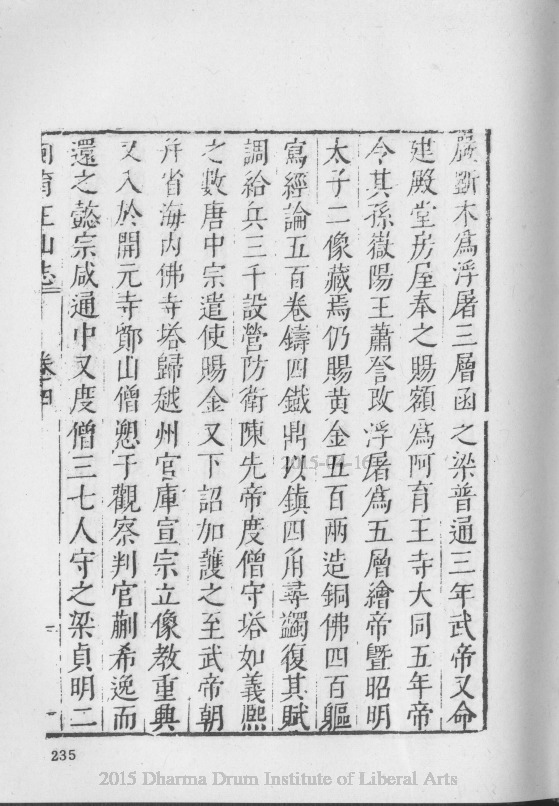 嚴斲木爲浮屠三層函之梁普通三年武帝又命
建殿堂房屋奉之賜額爲阿育王寺大同五年帝
令其孫嶽陽王蕭詧改浮屠爲五層繪帝曁昭明
太子二像藏焉仍賜黃金五百兩造銅佛四百軀
寫經論五百卷鑄四鐵鼎以鎮四角尋蠲復其賦
調給兵三千設營防衛陳先帝度僧守塔如義熙
之數唐中宗遣使賜金又下詔加護之至武帝朝
并省海内佛寺塔歸越州官庫宣宗立像教重興
又入於開元寺鄮山僧愬于觀察判官蒯希逸而
還之懿宗咸通中又度僧三七人守之梁貞明二
阿育王山志 卷四
235
2015-04-16
2015 Dharma Drum Institute of Liberal Arts